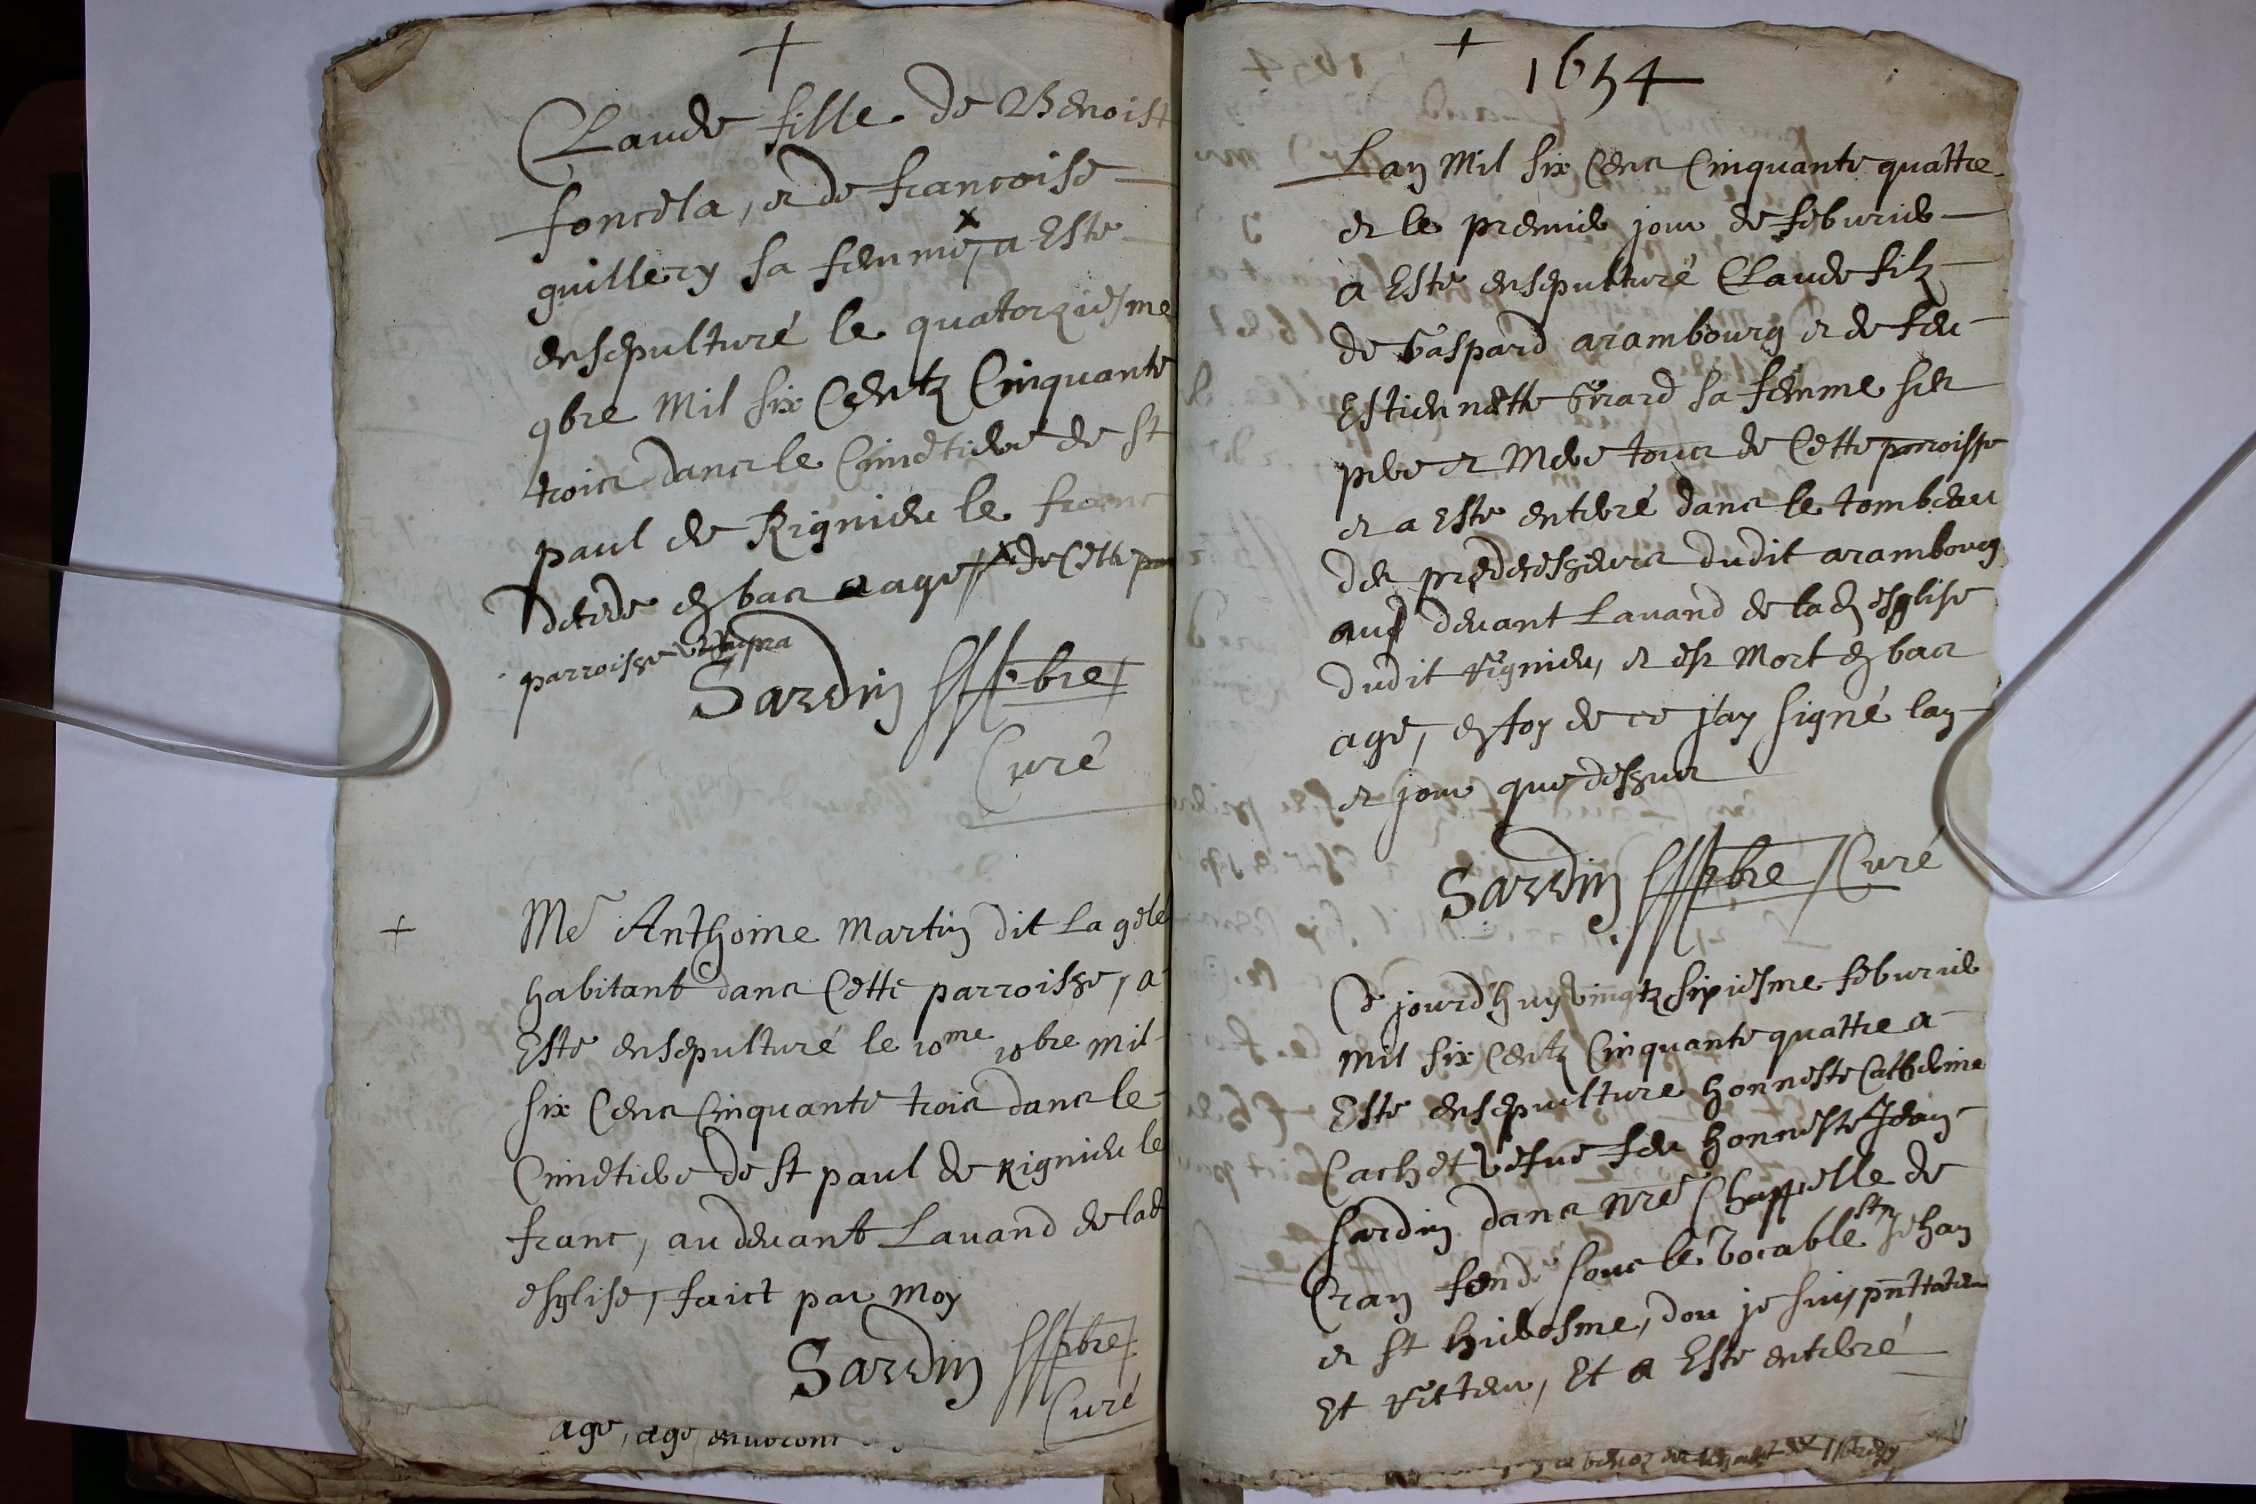 Claude fille de Benoist
foncela, et de francoise
guillery sa femme, a Este
ensepulturé le quatorziesme
9bre Mil six Centz Cinquante
trois dans le Cimetiere de st
paul de Rignieu le franc
decede en bas aage, de Cette par
parroisse ut supra
Sardin pbre
Curé
Me Anthoine Martin dit La
habitant dans Cette parroisse, a
Este ensepulturé le 10me 10bre mil
six Cens Cinquante trois dans le
Cimetiere de st paul de Rignieu le
franc, au devant Lavand de lad
esglise, faict par moy
Sardin pbre
Curé
age, age environ
1654
Lan Mil six Cens Cinquante quattre
et le premier jour de feburier
a Este ensepulturé Claude filz
de Gaspard arambourg et de feu
Estiennette Girard sa femme ses
pere et Mere tous de Cette parroisse
et a Este enterré dans le tombeau
des predecesseurs dudit arambourg
au devant Lavand de lad esglise
dudit Rignieu, et est Mort en bas
age, en foy de ce jay signé lan
et jour que dessus
Sardin pbre Curé
Ce jourdhuy vingtz sixiesme feburier
mil six Centz Cinquante quattre a
Este ensepulture honneste Catherine
Cachet vefue feu honneste Jean
Sardin dans nre Chappelle de
Cran fondé sous le vocable st Jehan
et st hierosme, dou je suis pnttateur
Et recteur, Et a Este enterré